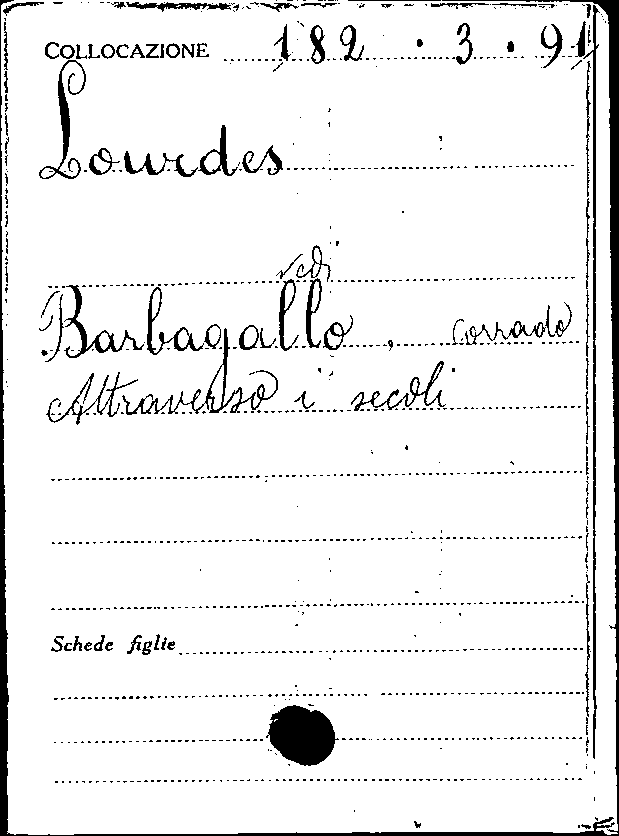 COLLOCAZIONE 182 . 3 . 91
Lourdes
vedi
Barbagallo, Corrado
Attraverso i secoli
Schede figlie